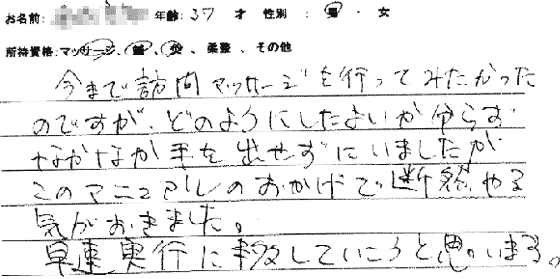 お名前: 年齢: 37 才 性別 : 男 ・ 女
所持資格: マッサージ、鍼、灸、柔整、その他
今まで訪問マッサージを行ってみたかった
のですが、どのようにしたよいか分らず
なかなか手を出せずにいましたが
このマニュアルのおかげで断然やる
気がおきました。
早速実行に移していこうと思います。